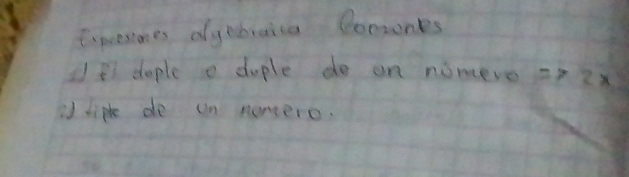 Expresiones algebraica Comones
1) El dople o duple de un número => 2x
2) triple de un número.